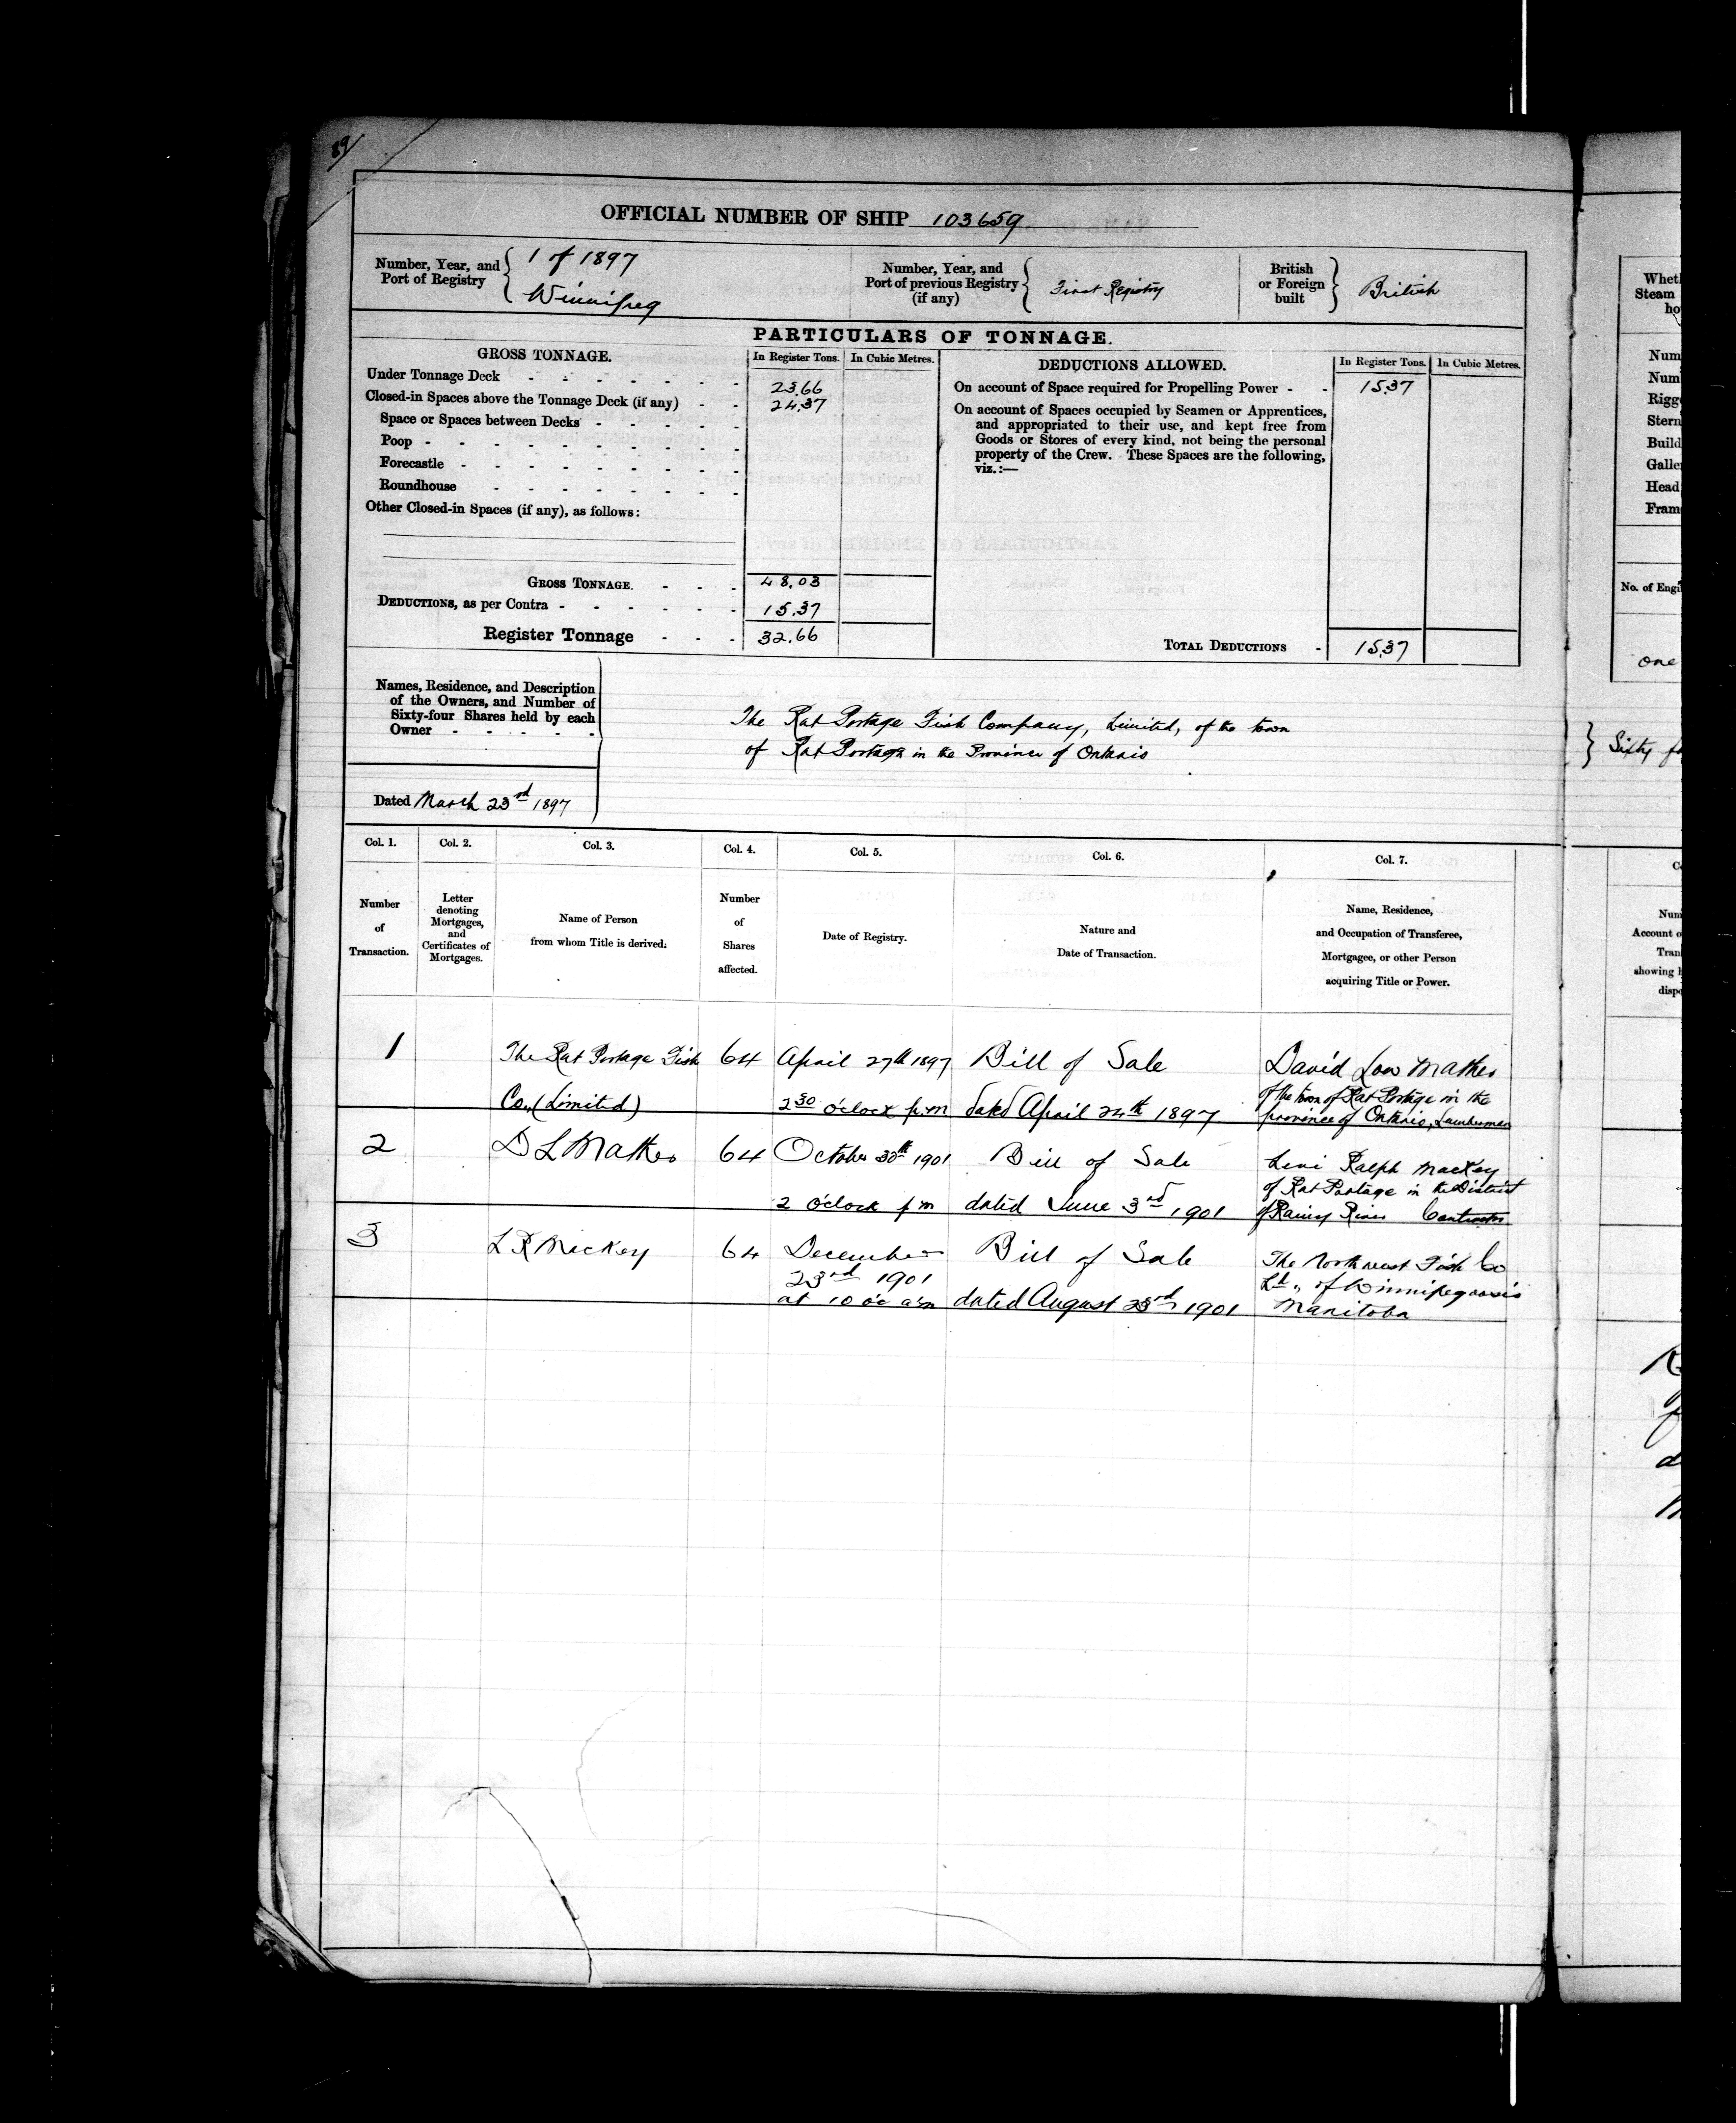 89
OFFICIAL NUMBER OF SHIP 103659
Number, Year, and Port of Registry { 1 of 1897 Winnipeg
Number, Year, and Port of previous Registry (if any) { First Registry
British or Foreign built } British
PARTICULARS OF TONNAGE.
GROSS TONNAGE. In Register Tons. In Cubic Metres.
Under Tonnage Deck - - - - - - - 23.66
Closed-in Spaces above the Tonnage Deck (if any) - - 24.37
Space or Spaces between Decks - - - - -
Poop - - - - - - - - -
Forecastle - - - - - - - -
Roundhouse - - - - - - -
Other Closed-in Spaces (if any), as follows:
GROSS TONNAGE. - - - 48.03
DEDUCTIONS, as per Contra - - - - - - 15.37
Register Tonnage - - - 32.66
DEDUCTIONS ALLOWED. In Register Tons. In Cubic Metres.
On account of Space required for Propelling Power - - 15.37
On account of Spaces occupied by Seamen or Apprentices,
and appropriated to their use, and kept free from
Goods or Stores of every kind, not being the personal
property of the Crew. These Spaces are the following,
viz.:—
TOTAL DEDUCTIONS - 15.37
Names, Residence, and Description
of the Owners, and Number of
Sixty-four Shares held by each
Owner - - - - -
The Rat Portage Fish Company, Limited, of the town
of Rat Portage in the Province of Ontario
Dated March 23rd 1897
Col. 1. Col. 2. Col. 3. Col. 4. Col. 5. Col. 6. Col. 7.
Number of Transaction.
Letter denoting Mortgages, and Certificates of Mortgages.
Name of Person from whom Title is derived.
Number of Shares affected.
Date of Registry.
Nature and Date of Transaction.
Name, Residence, and Occupation of Transferee, Mortgagee, or other Person acquiring Title or Power.
1 The Rat Portage Fish 64 April 27th 1897 Bill of Sale David Low Mather
Co., (Limited) 2 30 o'clock p.m dated April 24th 1897 of the town of Rat Portage in the
province of Ontario, Lumberman
2 D L Mather 64 October 30th 1901 Bill of Sale Levi Ralph Mackey
of Rat Portage in the District
2 o'clock p m dated June 3rd 1901 of Rainy River Contractor
3 L R Mackey 64 December Bill of Sale The North west Fish Co
23rd 1901 Ld „ of Winnipegoosis
at 10 o'c a.m dated August 23rd 1901 Manitoba
Steam
Num
Num
Rigg
Stern
Build
Galle
Head
Fram
No. of Engi
one
} Sixty
Account o
Tran
showing
disp